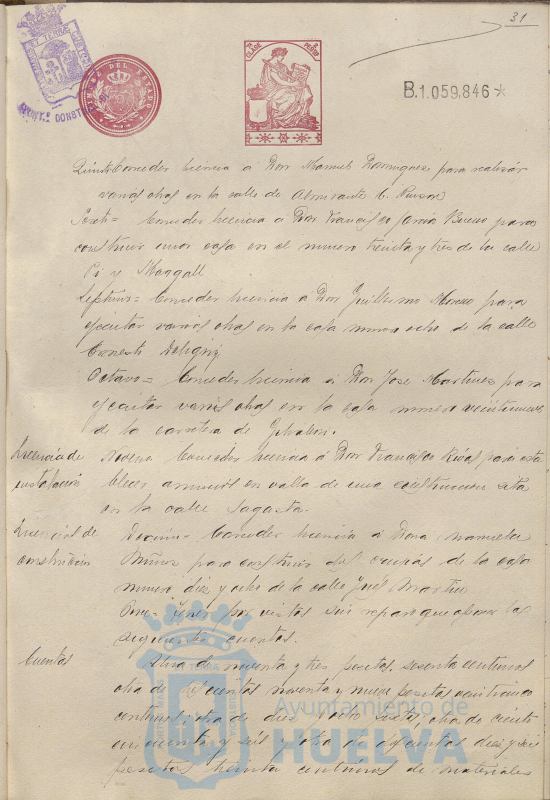 31
B.1.059,846
TIMBRE DEL ESTADO
Quinto= Conceder licencia á Don Manuel Dominguez para realizar
varias obras en la calle de Almirante H. Pinzon
Sexto= Conceder licencia á Don Francisco Garcia Bueno para
construir una casa en el numero treinta y tres de la calle
Pi y Margall
Septimo= Conceder licencia á Don Guillermo Moreno para
ejecutar varias obras en la casa numero ocho de la calle
Ernesto Deligny
Octavo= Conceder licencia á Don Jose Martinez para
ejecutar varias obras en la casa numero veintinueve
de la carretera de Gibraleon.
Licencia de
instalacion
Noveno Conceder licencia á Don Francisco para esta
blecer anuncios en valla de una construccion sita
en la calle Sagasta.
Licencias de
construccion
Decimo= Conceder licencia á Doña Manuela
Muñoz para construir de la casa
numero diez y ocho de la calle José Martin
Once= por vistas sin reparo que oponer las
siguientes cuentas.
Cuentas
Una de noventa y tres pesetas, sesenta centimos
otra de noventa y nueve pesetas veinticinco
centimos; otra de diez y ocho pesetas; otra de ciento
cincuenta y seis y otra de diez y seis
pesetas treinta centimos de materiales
Ayuntamiento de
HUELVA